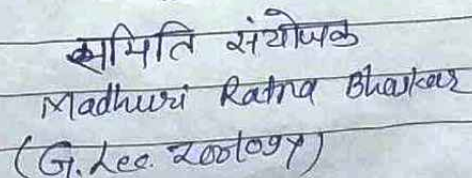 समिति संयोजक
Madhuri Ratna Bhaskar
(G. Lec. Zoology)